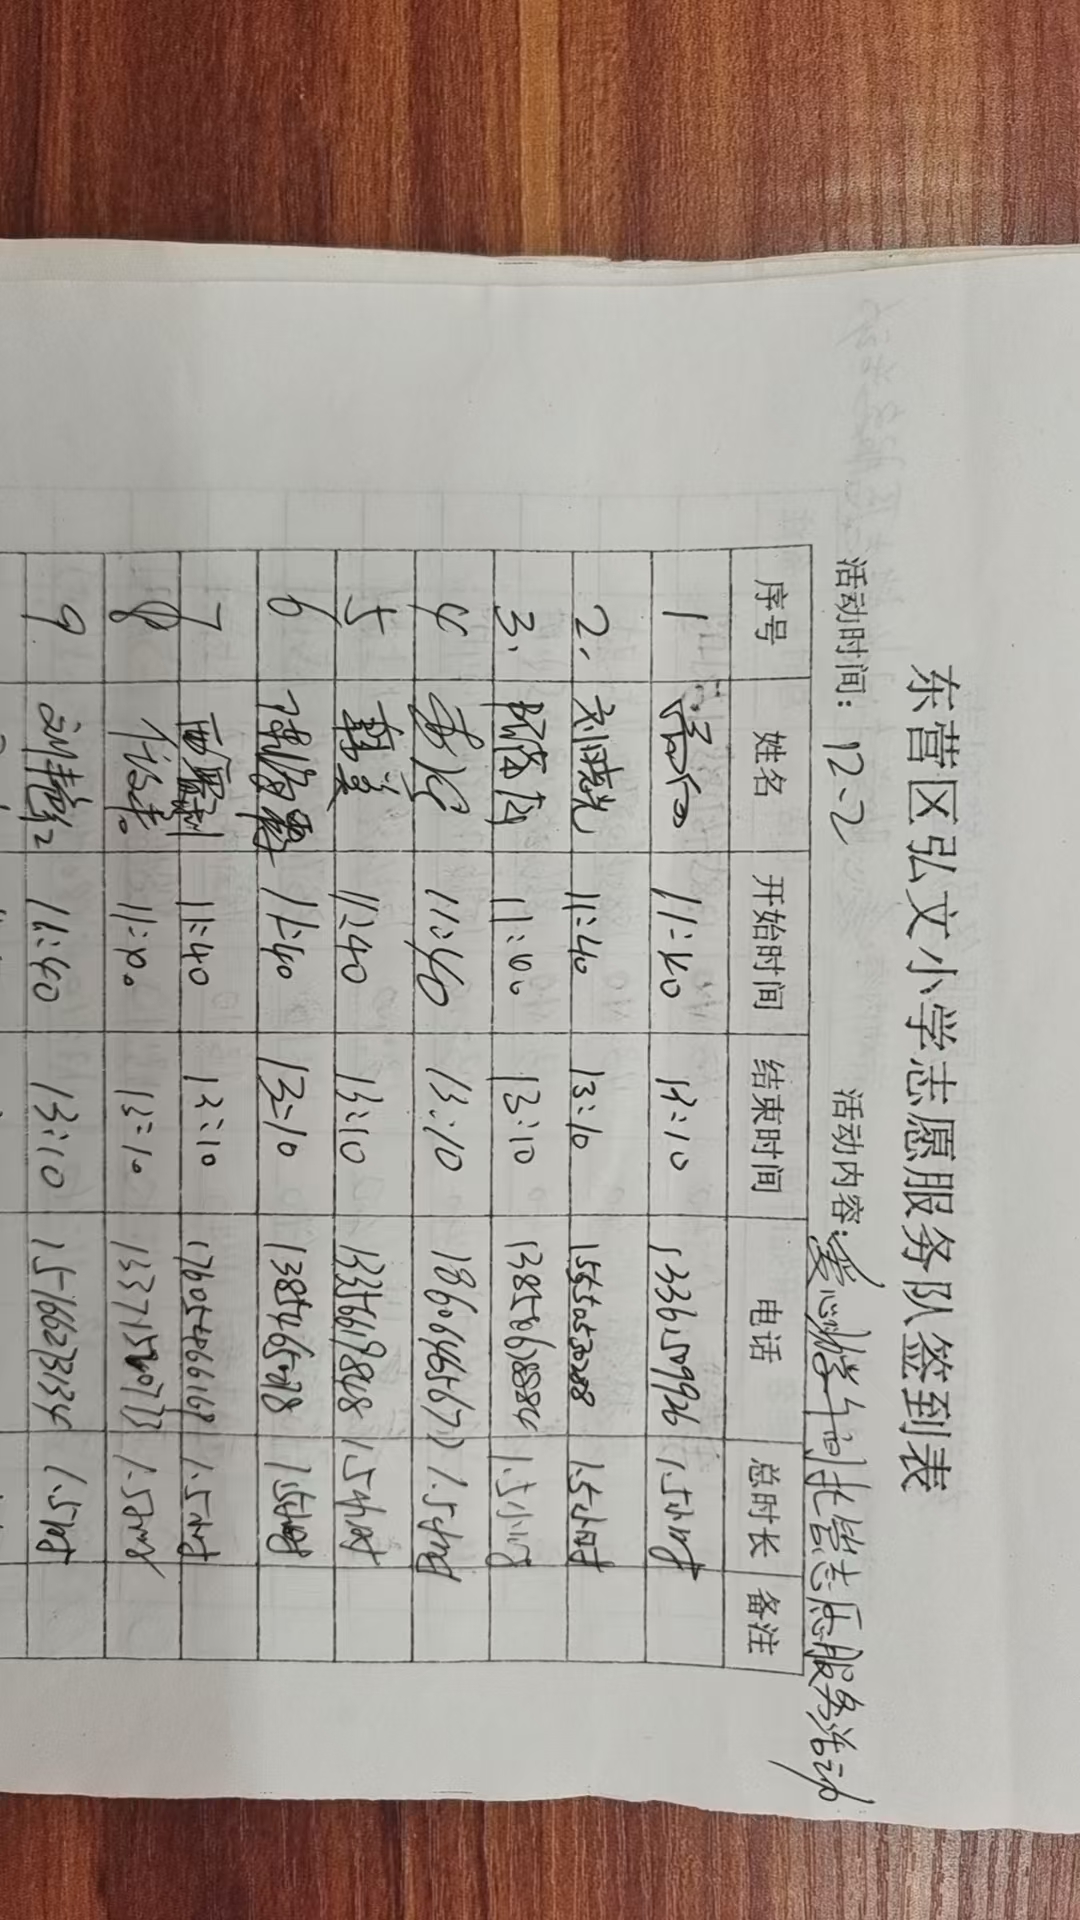 东营区弘文小学志愿服务队签到表
活动时间：12.2 活动内容：爱心助学午间托管志愿服务活动
序号 姓名 开始时间 结束时间 电话 总时长 备注
1 11:40 13:10 13361509926 1.5小时
2. 刘晓光 11:40 13:10 15650530288 1.5小时
3. 11:40 13:10 1.5小时
4 11:40 13:10 1.5小时
5 韩美 11:40 13:10 13356619848 1.5小时
6 11:40 13:10 1.5小时
7 11:40 13:10 17605466169 1.5小时
8 11:40 13:10 1.5小时
9 11:40 13:10 1.5小时